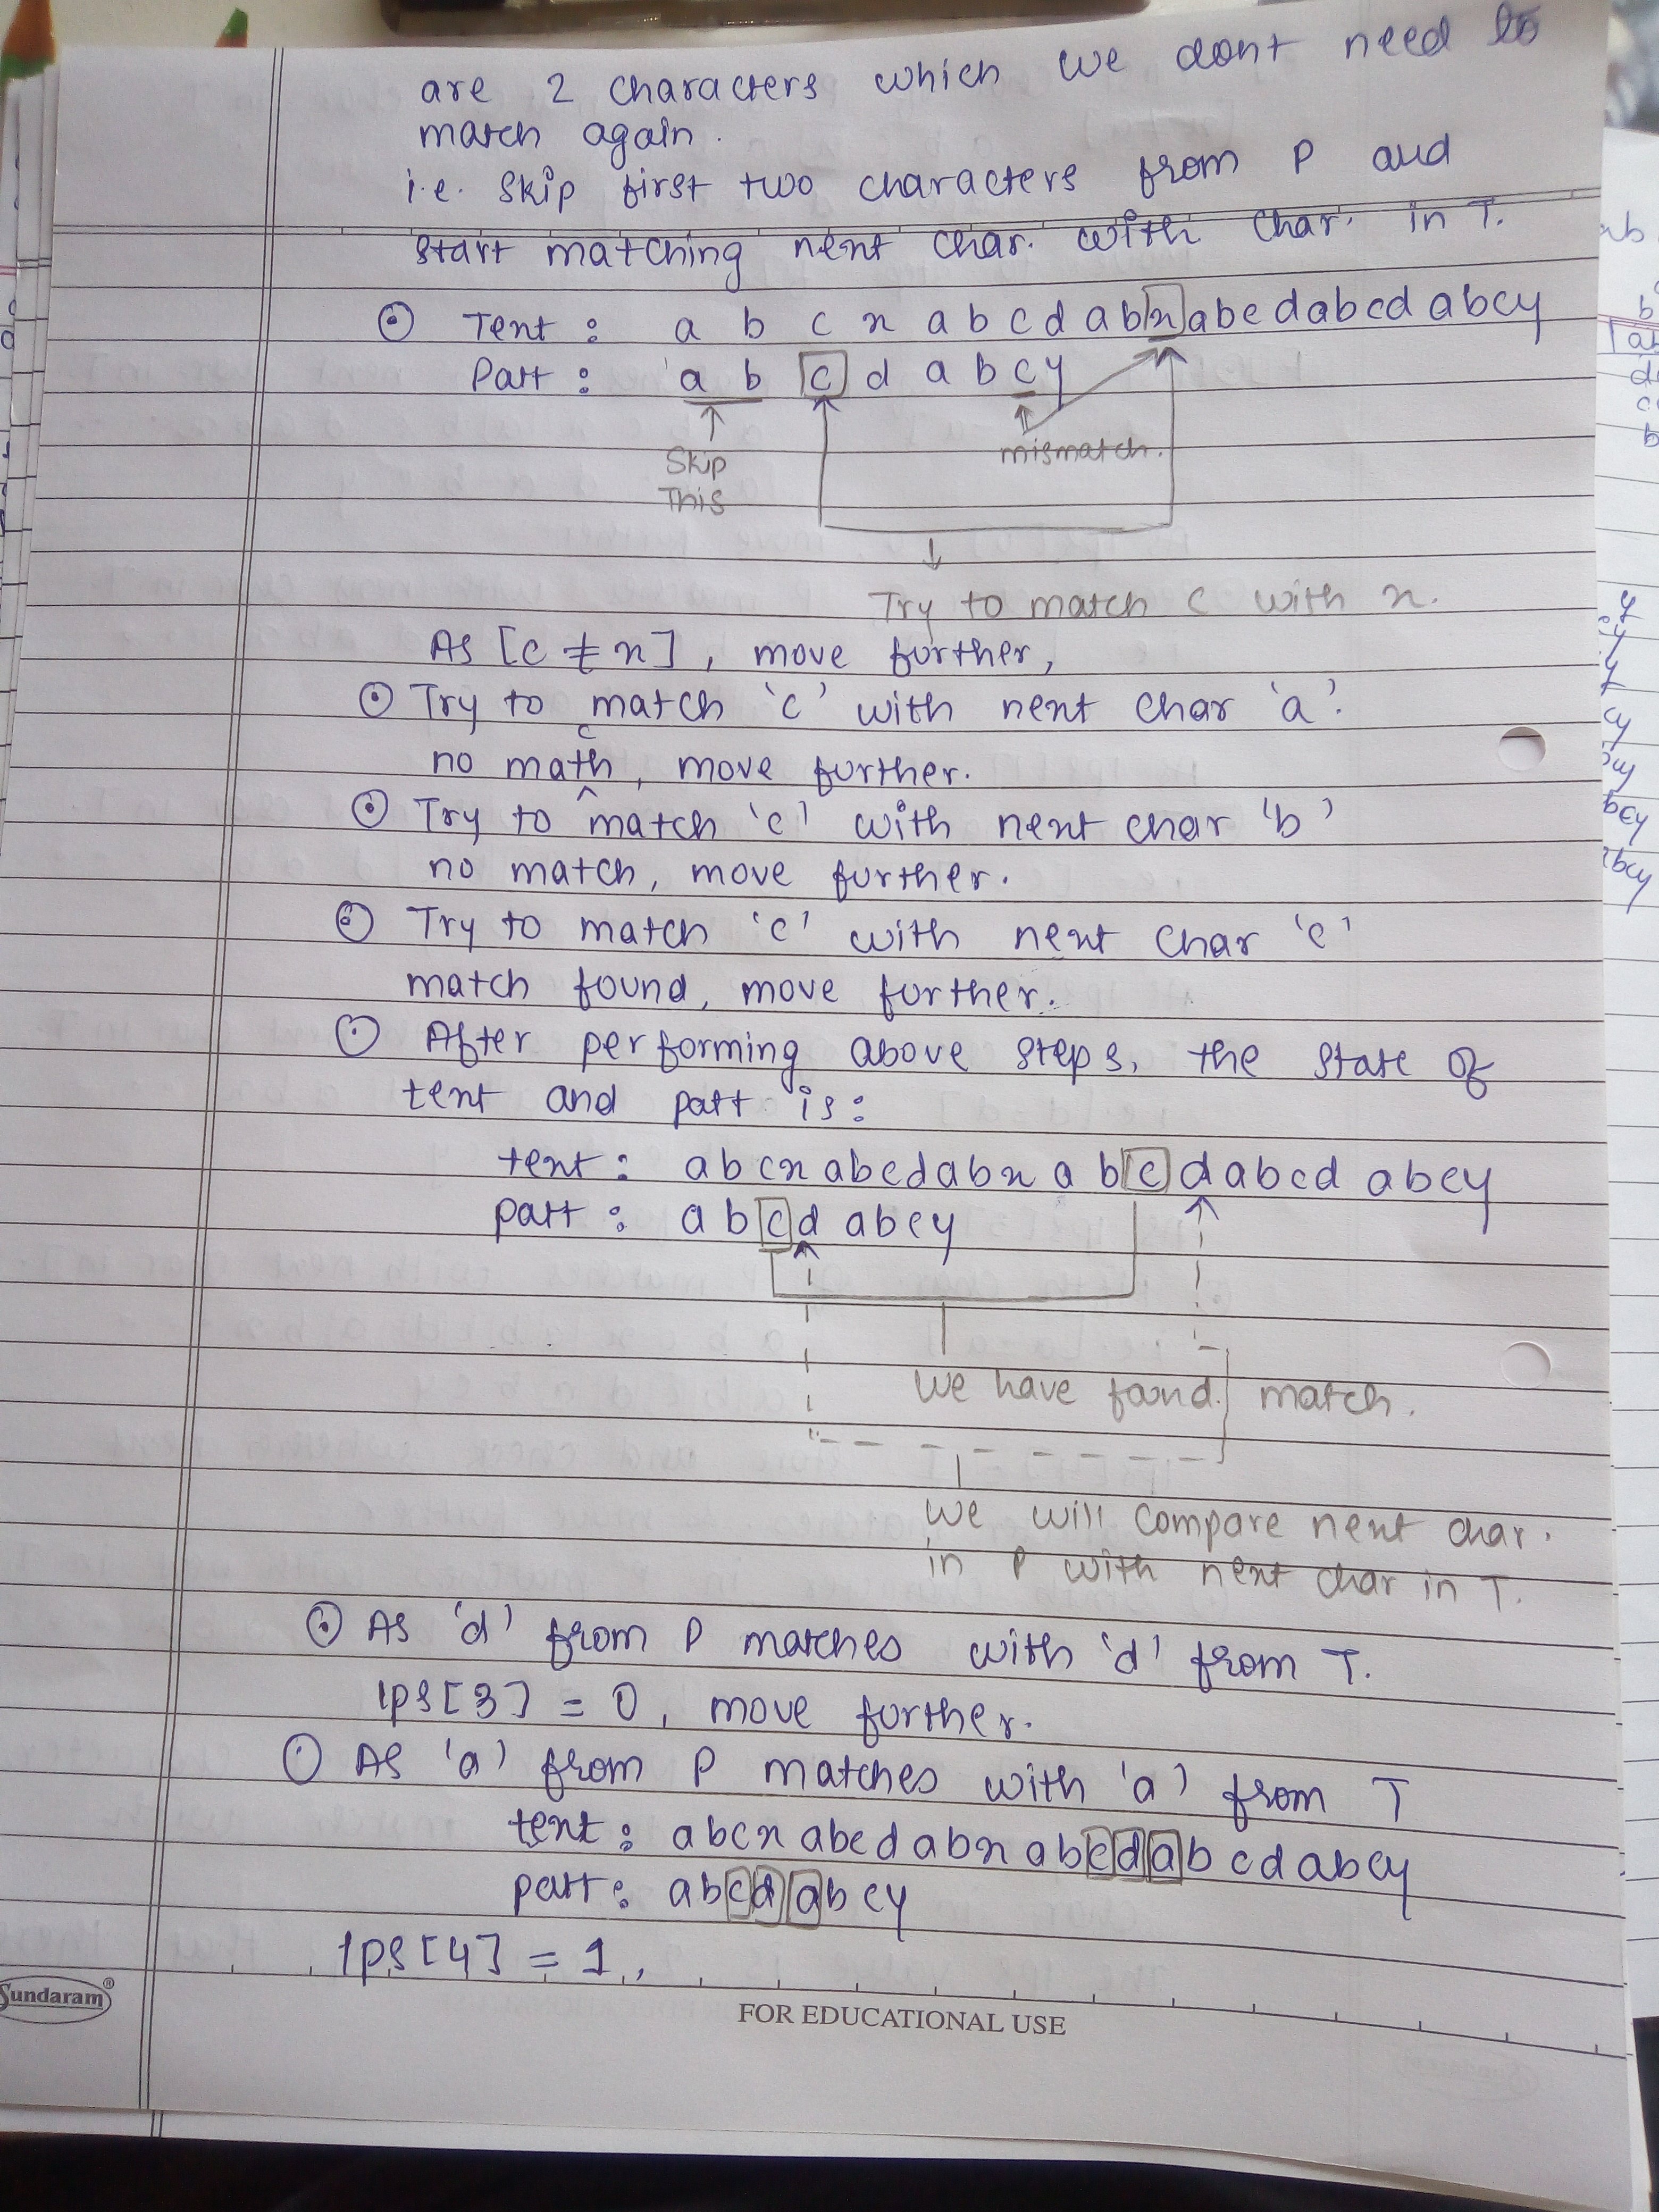 are 2 characters which we dont need to
match again.
i.e. skip first two characters from P and
start matching next char. with char. in T.
Text : a b c x a b c d a b x a b c d a b c d a b c y
Patt : a b c d a b c y
Skip
This
mismatch.
Try to match c with x.
As [c ≠ x], move further,
Try to match 'c' with next char 'a'.
no match, move further.
Try to match 'c' with next char 'b'
no match, move further.
Try to match 'c' with next char 'c'
match found, move further.
After performing above steps, the state of
text and patt is:
text : a b c x a b c d a b x a b c d a b c d a b c y
patt : a b c d a b c y
we have found match.
we will compare next char.
in P with next char in T.
As 'd' from P matches with 'd' from T.
lps[3] = 0, move further.
As 'a' from P matches with 'a' from T
text : a b c x a b c d a b x a b c d a b c d a b c y
patt : a b c d a b c y
lps[4] = 1,
Sundaram®
FOR EDUCATIONAL USE